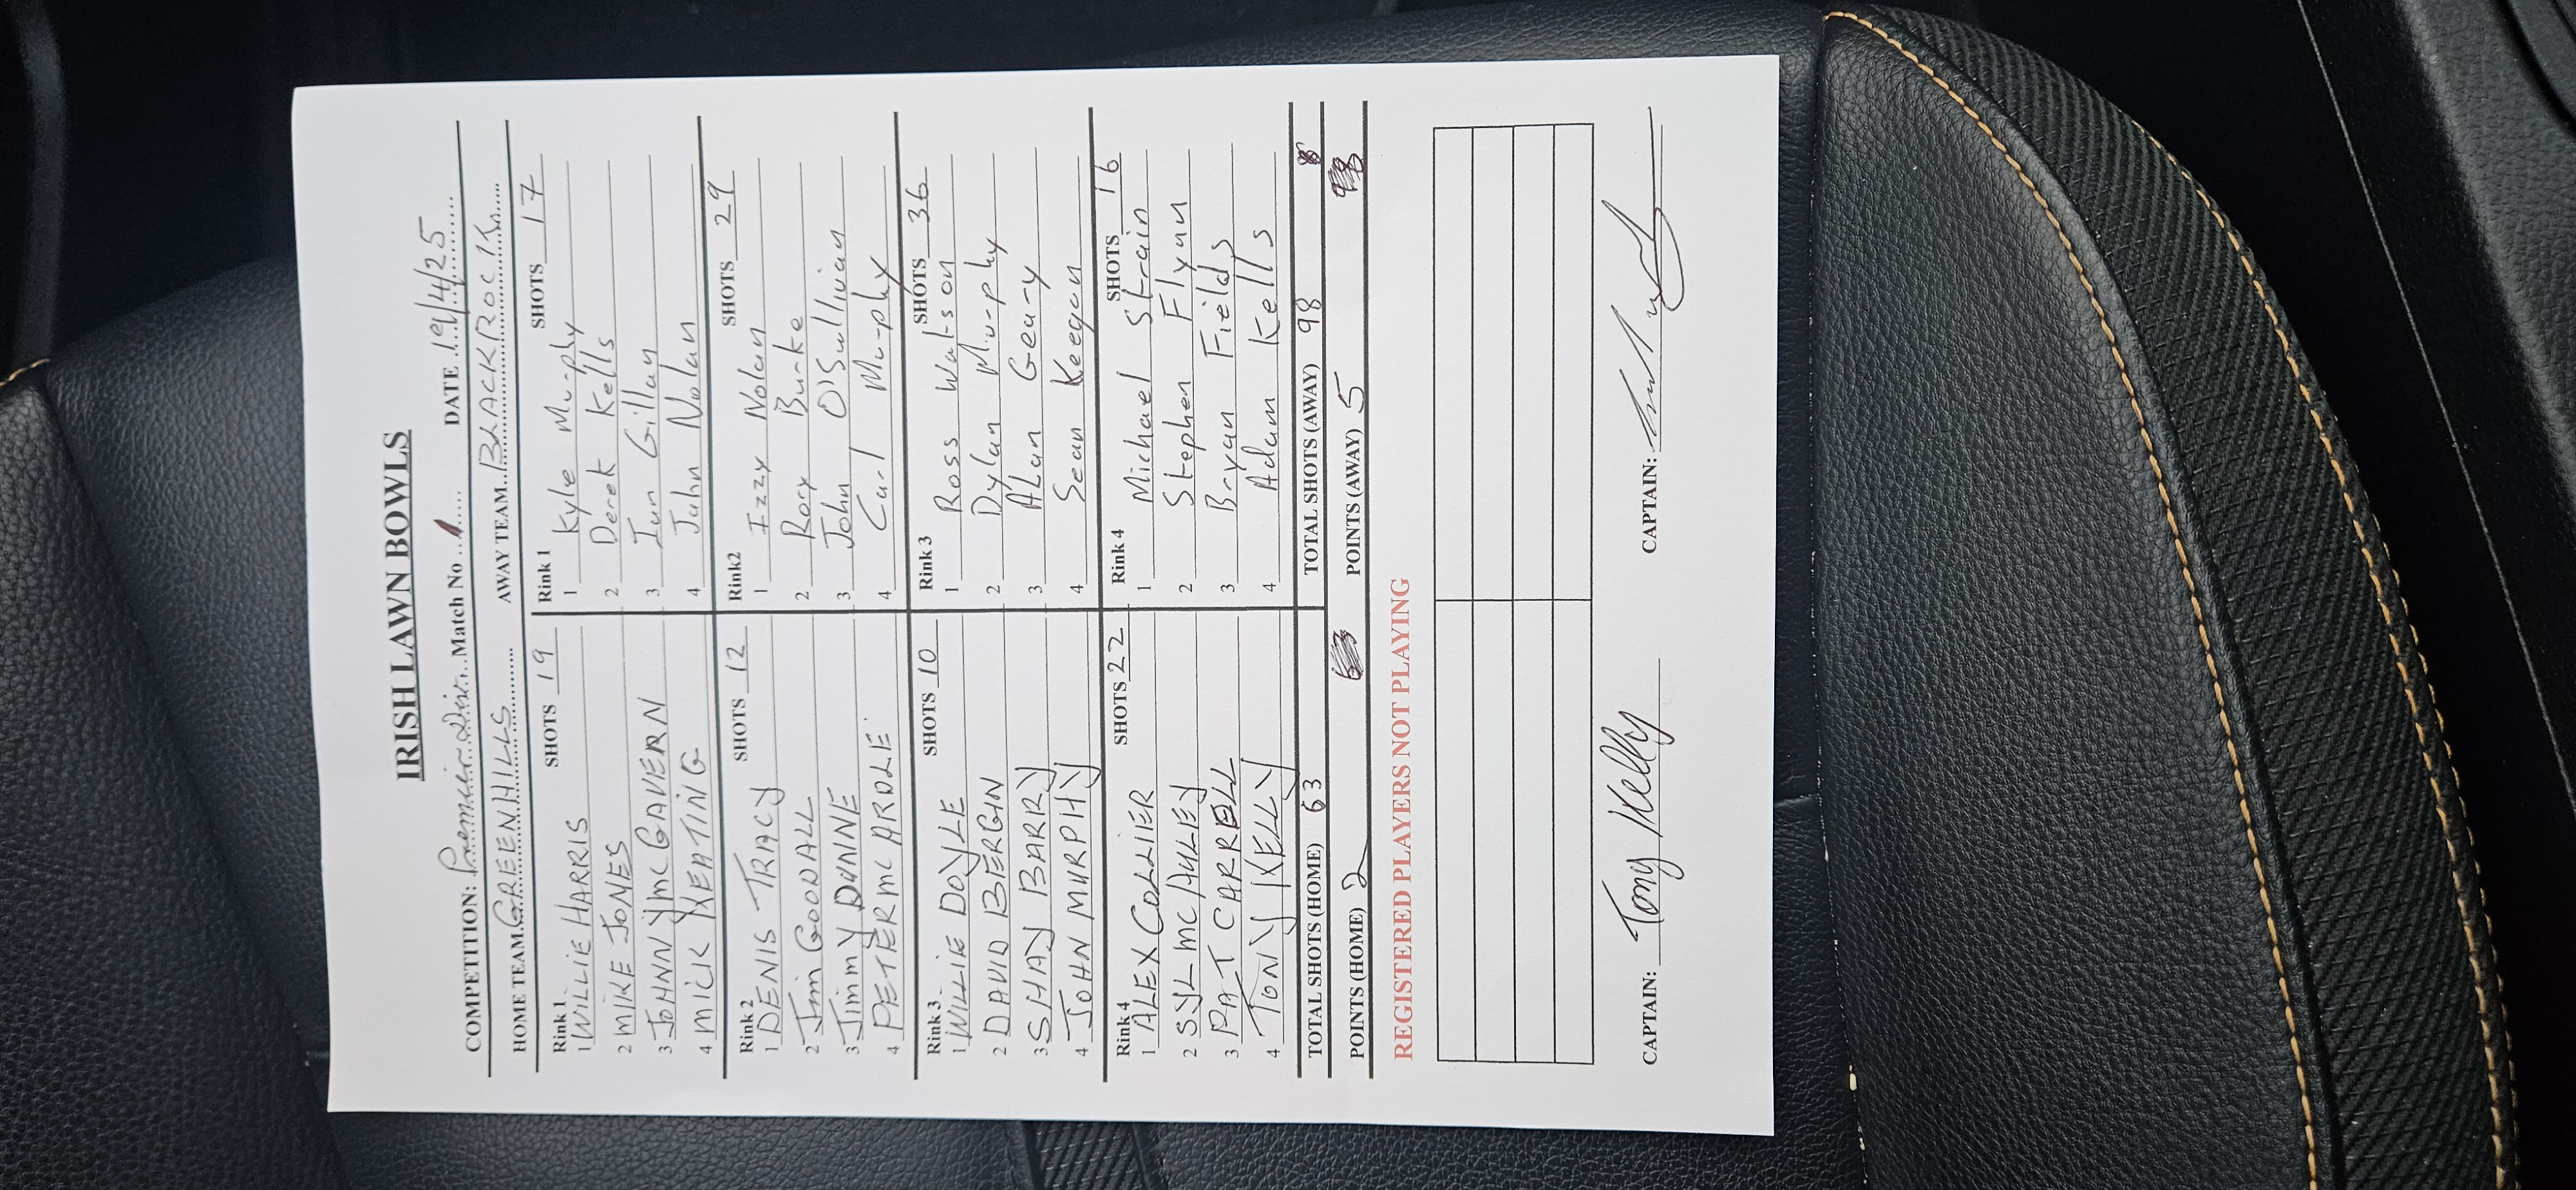 IRISH LAWN BOWLS
COMPETITION: Premier Div. Match No DATE 19/4/25
HOME TEAM. GREENHILLS AWAY TEAM. BLACKROCK
Rink 1 SHOTS 19 Rink 1 SHOTS 17
1 WILLIE HARRIS 1 Kyle Murphy
2 MIKE JONES 2 Derek Kells
3 JOHNNY MC GAVERN 3 Ian Gillan
4 MICK KEATING 4 John Nolan
Rink 2 SHOTS 12 Rink2 SHOTS 29
1 DENIS TRIACY 1 Izzy Nolan
2 Jim GOODALL 2 Rory Burke
3 Jimmy DUNNE 3 John O'Sullivan
4 PETER MC ARDLE 4 Carl Murphy
Rink 3 SHOTS 10 Rink 3 SHOTS 36
1 WILLIE DOYLE 1 Ross Watson
2 DAVID BERGIN 2 Dylan Murphy
3 SHAY BARRY 3 Alan Geary
4 JOHN MURPHY 4 Sean Keegan
Rink 4 SHOTS 22 Rink 4 SHOTS 16
1 ALEX COLLIER 1 Michael Strain
2 SYL MC AULEY 2 Stephen Flynn
3 PAT CARROLL 3 Bryan Fields
4 TONY KELLY 4 Adam Kells
TOTAL SHOTS (HOME) 63 TOTAL SHOTS (AWAY) 98
POINTS (HOME) 2 POINTS (AWAY) 5
REGISTERED PLAYERS NOT PLAYING
CAPTAIN: Tony Kelly CAPTAIN: